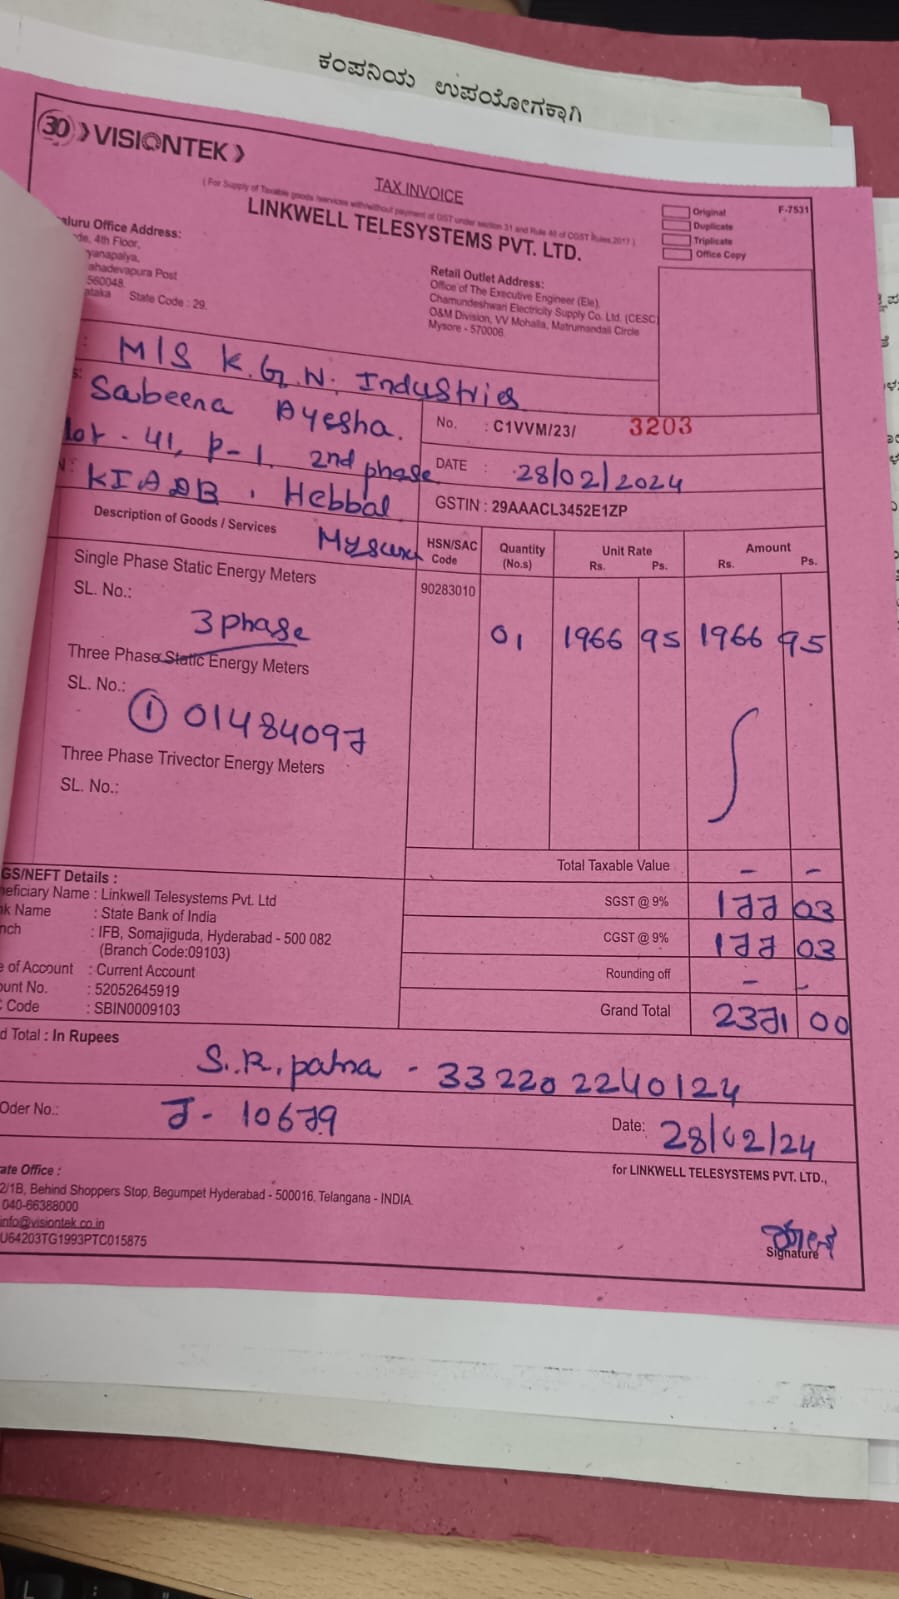 ಕಂಪನಿಯ ಉಪಯೋಗಕ್ಕಾಗಿ
30 VISIONTEK
TAX INVOICE
( For Supply of Taxable goods /services with/without payment of GST under section 31 and Rule 46 of CGST Rules,2017 )
LINKWELL TELESYSTEMS PVT. LTD.
Original
Duplicate
Triplicate
Office Copy
F-7531
aluru Office Address:
de, 4th Floor,
yanapalya,
ahadevapura Post
560048.
ataka State Code : 29.
Retail Outlet Address:
Office of The Executive Engineer (Ele),
Chamundeshwari Electricity Supply Co. Ltd. (CESC)
O&M Division, VV Mohalla, Matrumandali Circle
Mysore - 570006
M/S K.G.N. Industries
Sabeena Ayesha.
lot - 41, P-1, 2nd phase
KIADB, Hebbal
Mysuru
No. : C1VVM/23/ 3203
DATE : 28/02/2024
GSTIN : 29AAACL3452E1ZP
Description of Goods / Services
HSN/SAC Code
Quantity (No.s)
Unit Rate Rs. Ps.
Amount Rs. Ps.
Single Phase Static Energy Meters 90283010
SL. No.:
3 phase 01 1966 95 1966 95
Three Phase Static Energy Meters
SL. No.:
① 01484097
Three Phase Trivector Energy Meters
SL. No.:
Total Taxable Value - -
GS/NEFT Details :
neficiary Name : Linkwell Telesystems Pvt. Ltd
nk Name : State Bank of India
nch : IFB, Somajiguda, Hyderabad - 500 082
(Branch Code:09103)
e of Account : Current Account
ount No. : 52052645919
C Code : SBIN0009103
SGST @ 9% 177 03
CGST @ 9% 177 03
Rounding off - -
Grand Total 2321 00
d Total : In Rupees
S.R. patna - 332202240124
Oder No.: J - 10679
Date: 28/02/24
ate Office :
2/1B, Behind Shoppers Stop, Begumpet Hyderabad - 500016, Telangana - INDIA.
040-66388000
info@visiontek.co.in
U64203TG1993PTC015875
for LINKWELL TELESYSTEMS PVT. LTD.,
Signature